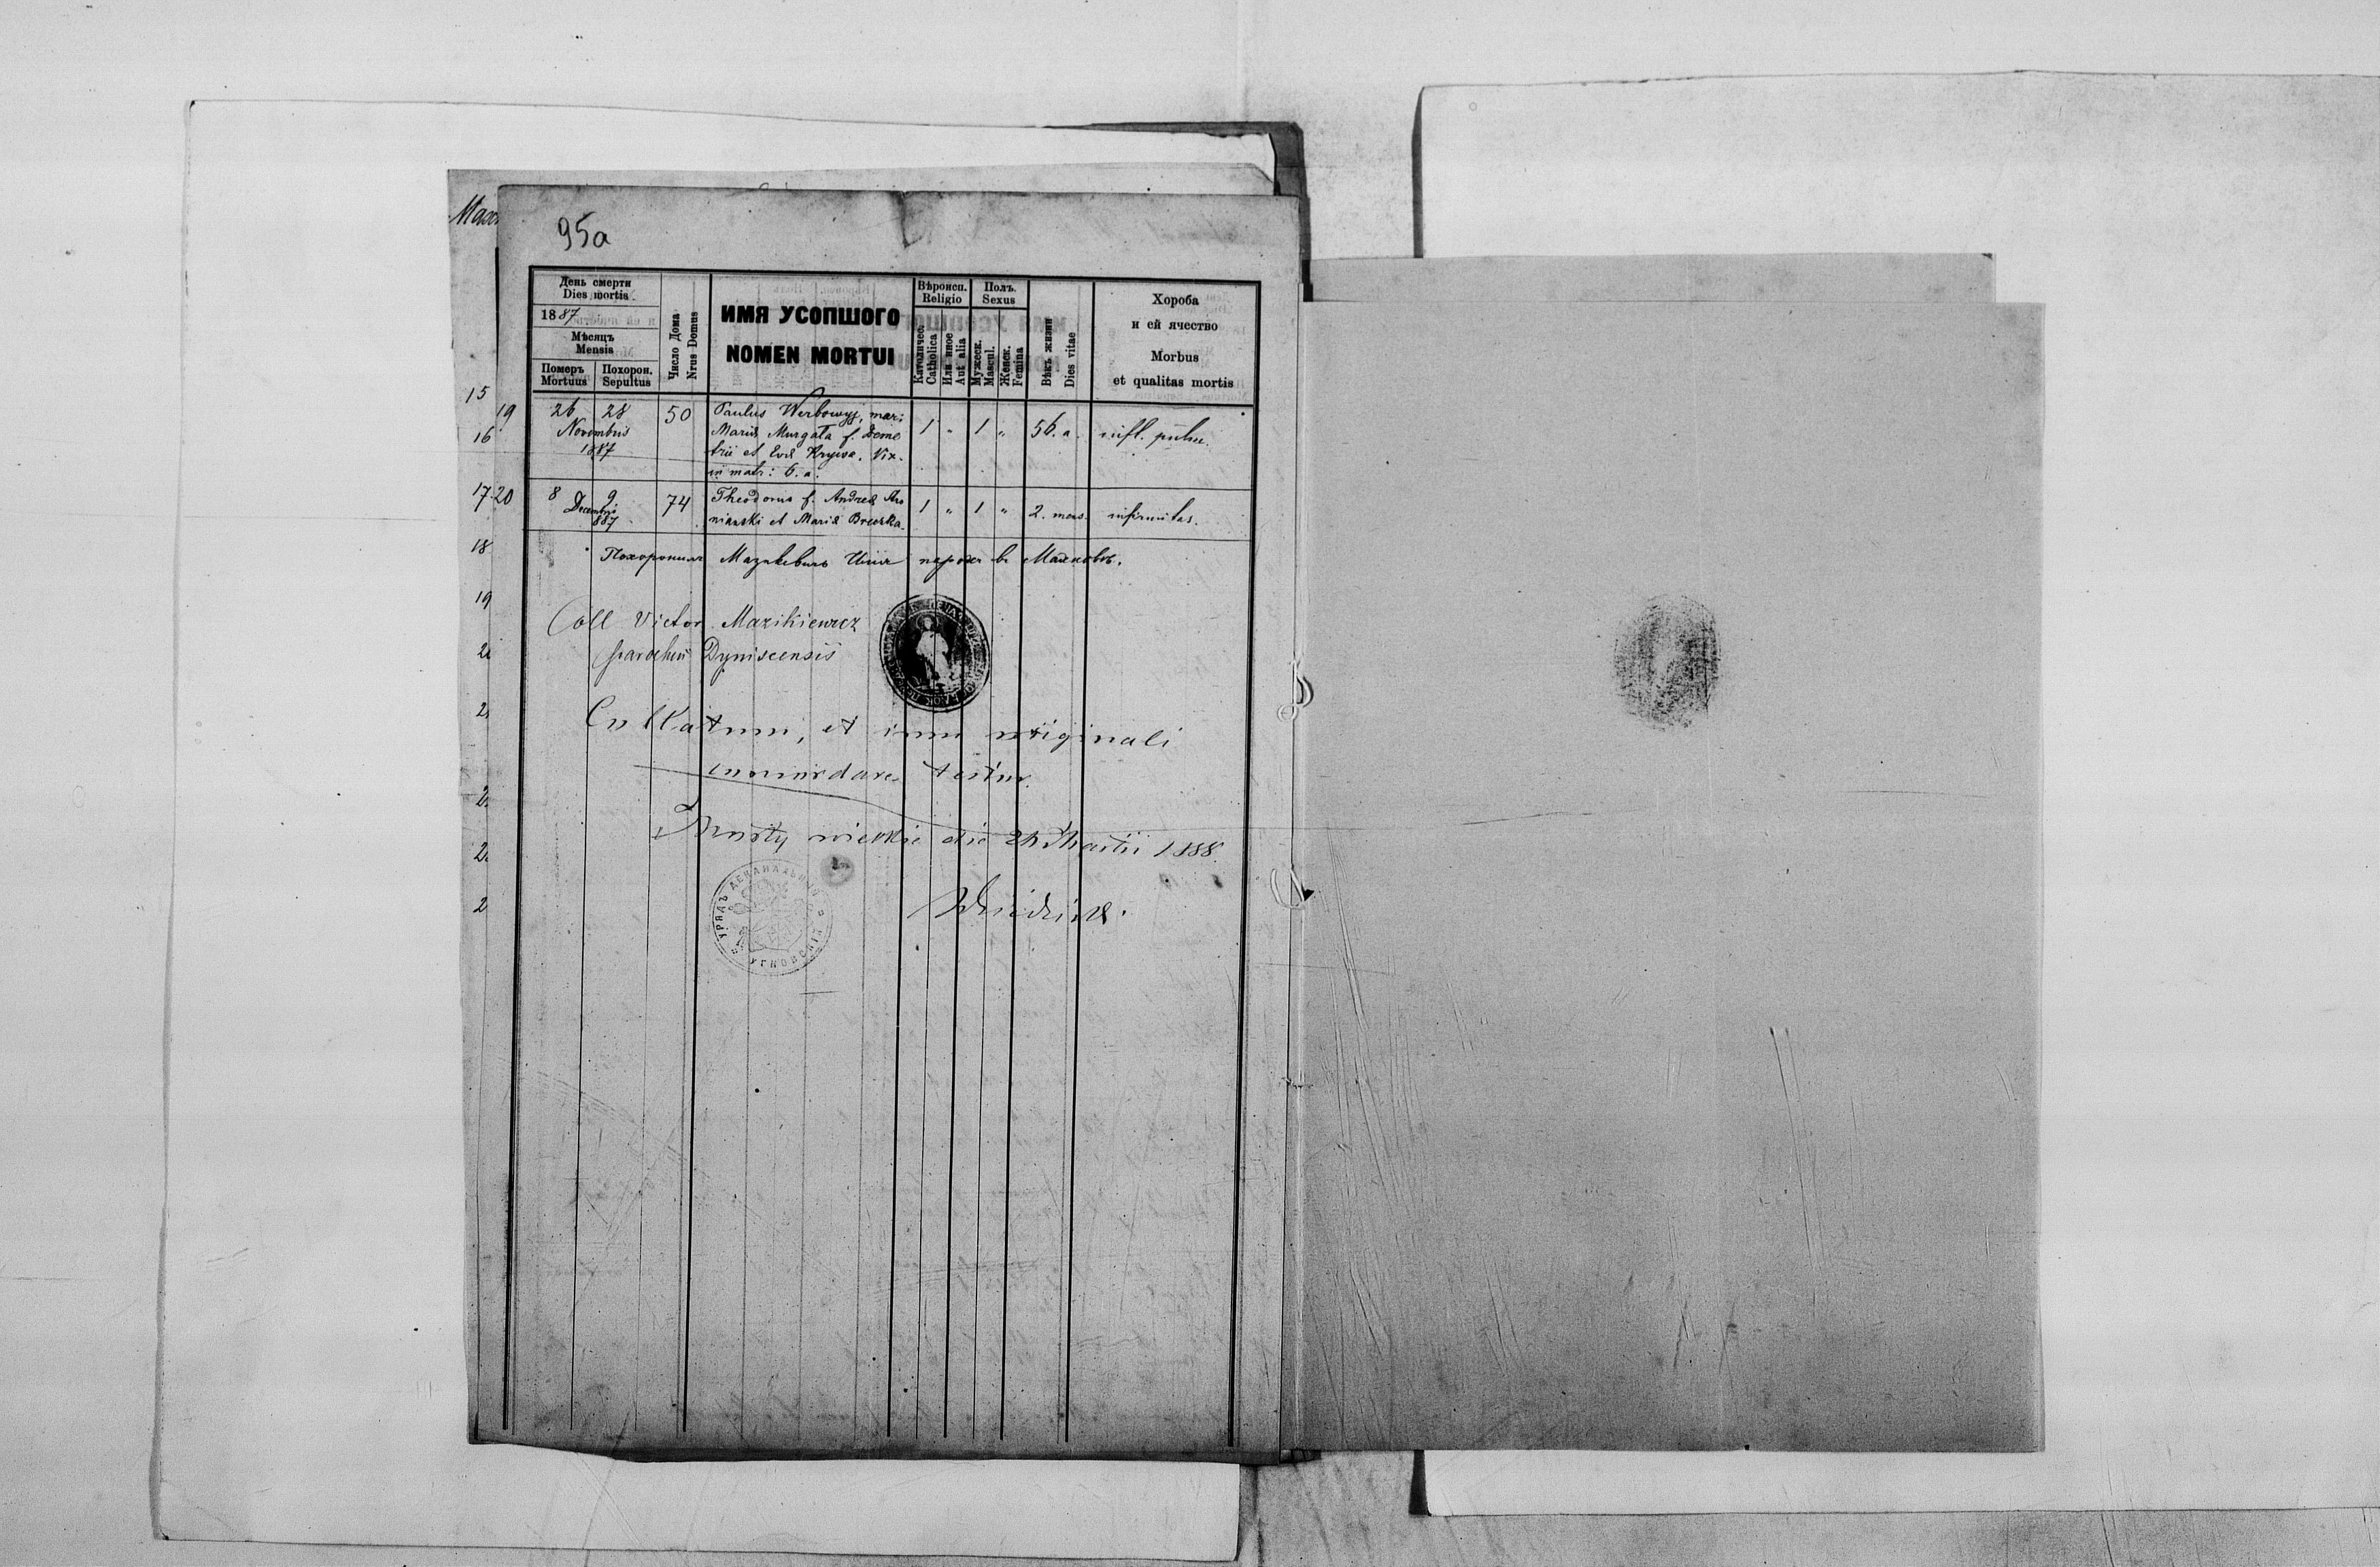 95a
День смерти
Dies mortis.
1887
Мѣсяцъ
Mensis
Померъ Похорон.
Mortuus Sepultus
Число Дома
Nrus Domus
ИМЯ УСОПШОГО
NOMEN MORTUI
Вѣроисп.
Religio
Католичес.
Catholica
Или иное
Aut alia
Полъ.
Sexus
Мужеск.
Mascul.
Женск.
Femina
Вѣкъ жизни
Dies vitae
Хороба
и ей ячество
Morbus
et qualitas mortis
19 26 28 50 Paulus Werbowyj, mar: 1 " 1 " 56. a. infl. pulm.
Novembris Mariæ Murgała f. Deme
1887 trii et Evæ Krywa. Vix.
in matr: 6. a:
20 8 9 74 Theodorus f. Andreæ 1 " 1 " 2. mens. infirmitas.
Decembri et Mariæ
887
Похоронилъ парохъ въ
Coll Victor Mazikiewicz
parochus Dyniscensis
Collatum, et cum originali
concordare testor.
die Martii 1888.
УРЯДЪ ДЕКАНАЛЬНЫЙ
УГНОВСКІЙ
15
16
17
18
19